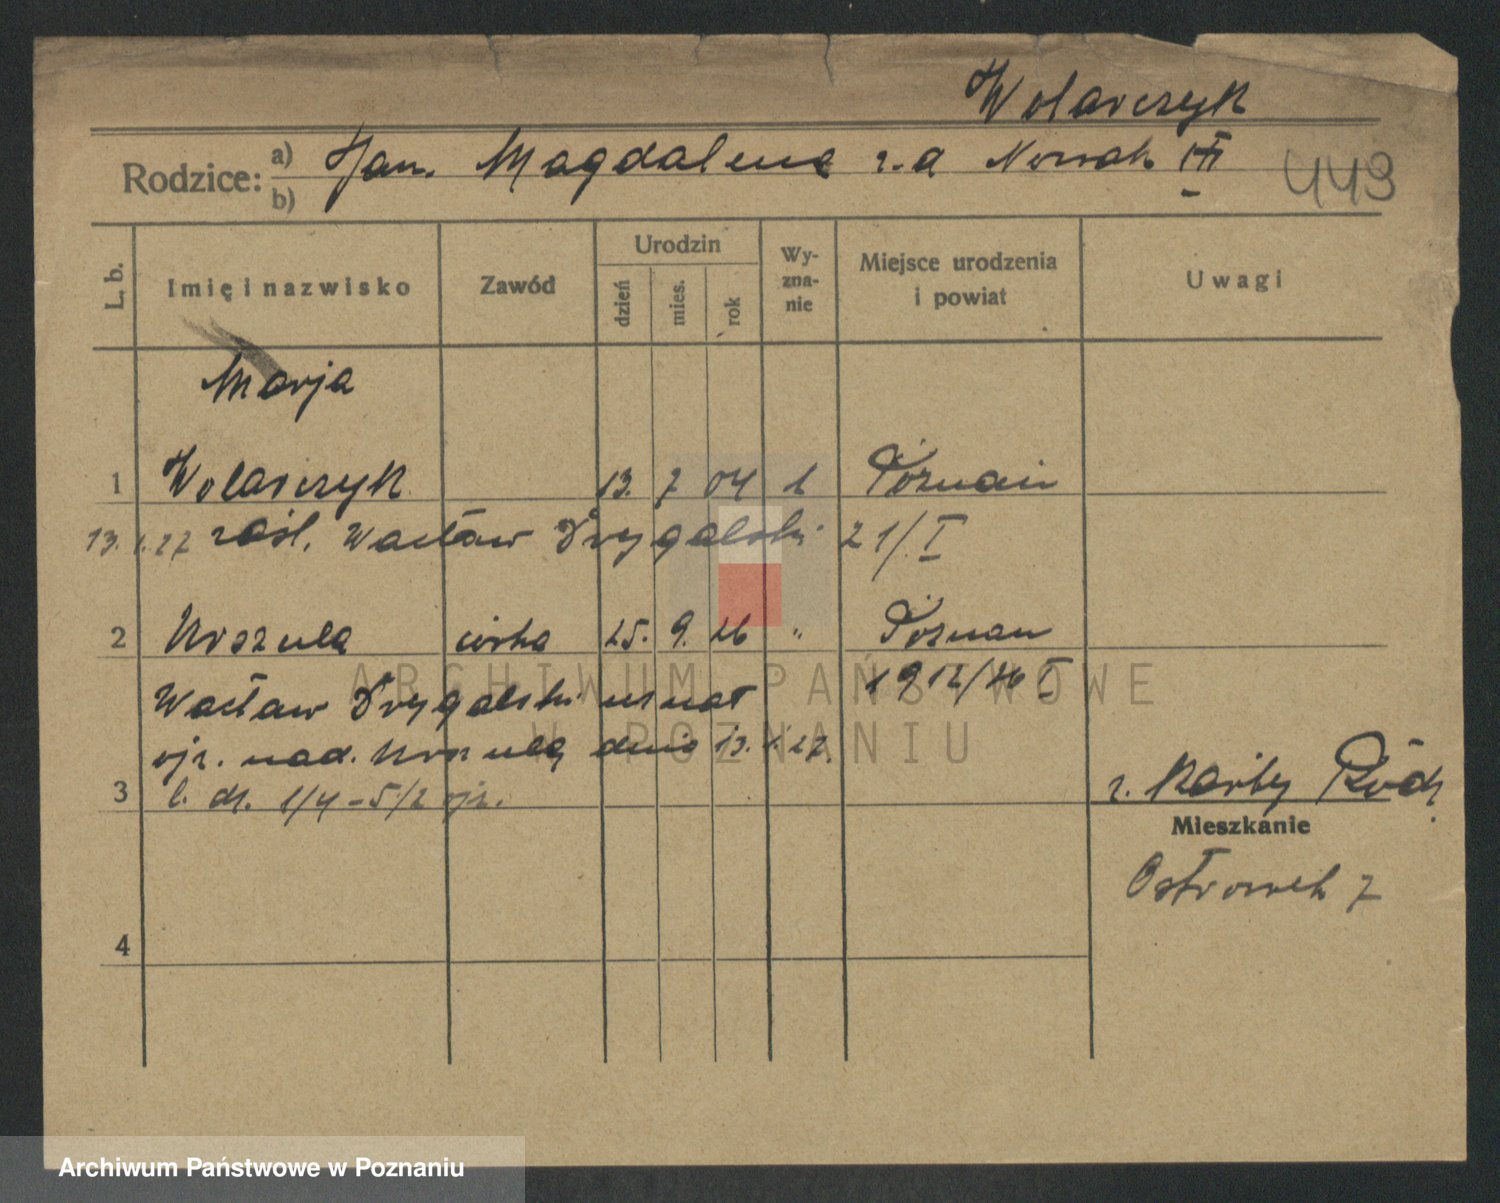 Wolarczyk
Rodzice: a) b) Jan. Magdalena z.d Nowak III 449
L. b. Imię i nazwisko Zawód Urodzin dzień mies. rok Wy-zna-nie Miejsce urodzenia i powiat Uwagi
Marja
1 Wolarczyk 13. 7 04 k Poznań
13. 1. 27 zaśl. Wacław Drygalski 21/I
2 Urszula córka 25. 9. 26 " Poznań
1912/26 I
Wacław Drygalski uznał
ojc. nad. Urszulą dnia 13. 1. 27.
3 l. dz. 1/4 - 5/2 ojc. z. Karty
Mieszkanie
Ostrówek 7
4
ARCHIWUM PAŃSTWOWE
W POZNANIU
Archiwum Państwowe w Poznaniu